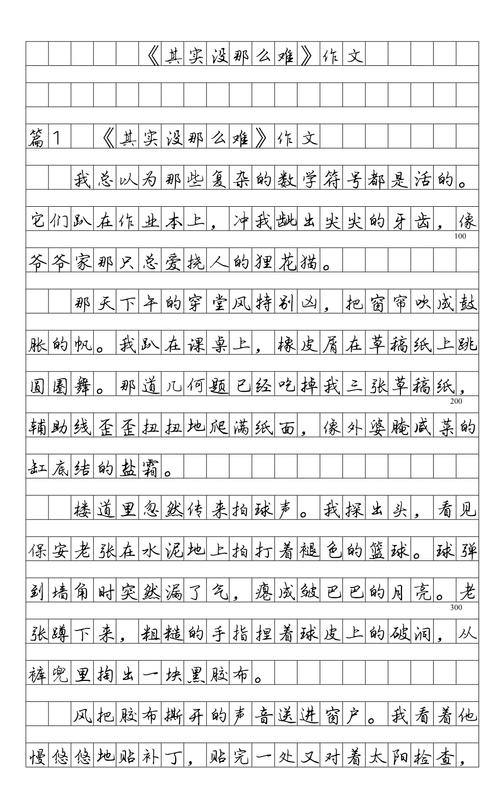 《其实没那么难》作文
篇1 《其实没那么难》作文
我总以为那些复杂的数学符号都是活的。
它们趴在作业本上，冲我龇出尖尖的牙齿，像
100
爷爷家那只总爱挠人的狸花猫。
那天下午的穿堂风特别凶，把窗帘吹成鼓
胀的帆。我趴在课桌上，橡皮屑在草稿纸上跳
圆圈舞。那道几何题已经吃掉我三张草稿纸，
200
辅助线歪歪扭扭地爬满纸面，像外婆腌咸菜的
缸底结的盐霜。
楼道里忽然传来拍球声。我探出头，看见
保安老张在水泥地上拍打着褪色的篮球。球弹
到墙角时突然漏了气，瘪成皱巴巴的月亮。老
300
张蹲下来，粗糙的手指捏着球皮上的破洞，从
裤兜里掏出一块黑胶布。
风把胶布撕开的声音送进窗户。我看着他
慢悠悠地贴补丁，贴完一处又对着太阳检查，